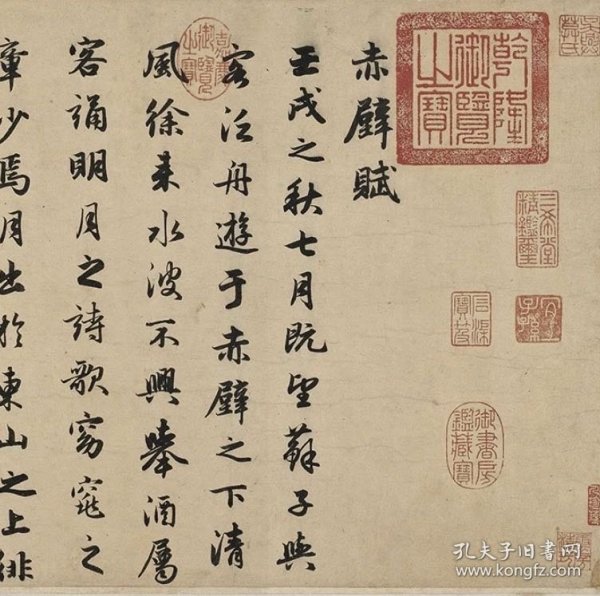 乾隆御覽之寶
三希堂精鑑璽
宜子孫
石渠寶笈
御書房鑑藏寶
赤壁賦
壬戌之秋七月既望蘇子與
客泛舟遊于赤壁之下清
風徐来水波不興舉酒屬
客誦明月之詩歌窈窕之
章少焉月出於東山之上徘
嘉慶御覽之寶
孔夫子旧书网
www.kongfz.com